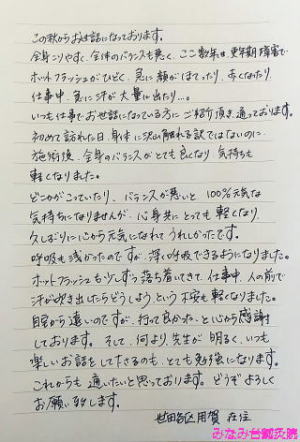 この秋からお世話になっております。
全身こりやすく、全体のバランスも悪く、ここ数年は更年期障害で
ホットフラッシュがひどく、急に顔がほてったり、赤くなったり
仕事中、急に汗が大量に出たり…。
いつも仕事でお世話になっている方にご紹介頂き、通っております。
初めて訪れた日、身体に沢山触れる訳ではないのに
施術後、全身のバランスがとても良くなり、気持ちも
軽くなりました。
どこかがこっていたり、バランスが悪いと100%元気な
気持ちになりませんが、心身共にとっても軽くなり、
久しぶりに心から元気になれてうれしかったです。
呼吸も浅かったのですが、深い呼吸できるようになりました。
ホットフラッシュも少しずつ落ち着いてきて、仕事中、人の前で
汗が吹き出したらどうしようという不安も軽くなりました。
自宅から遠いのですが、行って良かったと心から感謝
しております。そして、何より先生が明るく、いつも
楽しいお話をして下さるのも、とても勉強になります。
これからも通いたいと思っております。どうぞよろしく
お願い致します。
世田谷区用賀 在住
みなみ台鍼灸院